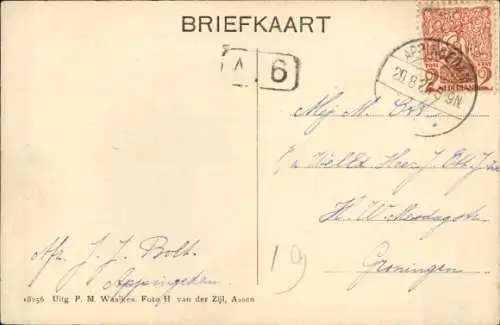 BRIEFKAART
A 6
APPINGEDAM
20.8.2 8-9N
NEDERLAND
Mej M. Bolt
a/d WelEd Heer J. Bolt J
H. W. Mesdagstr
Groningen
19
Afz. J. J. Bolt.
Appingedam
18956 Uitg P. M. Waalkes. Foto H van der Zijl, Assen